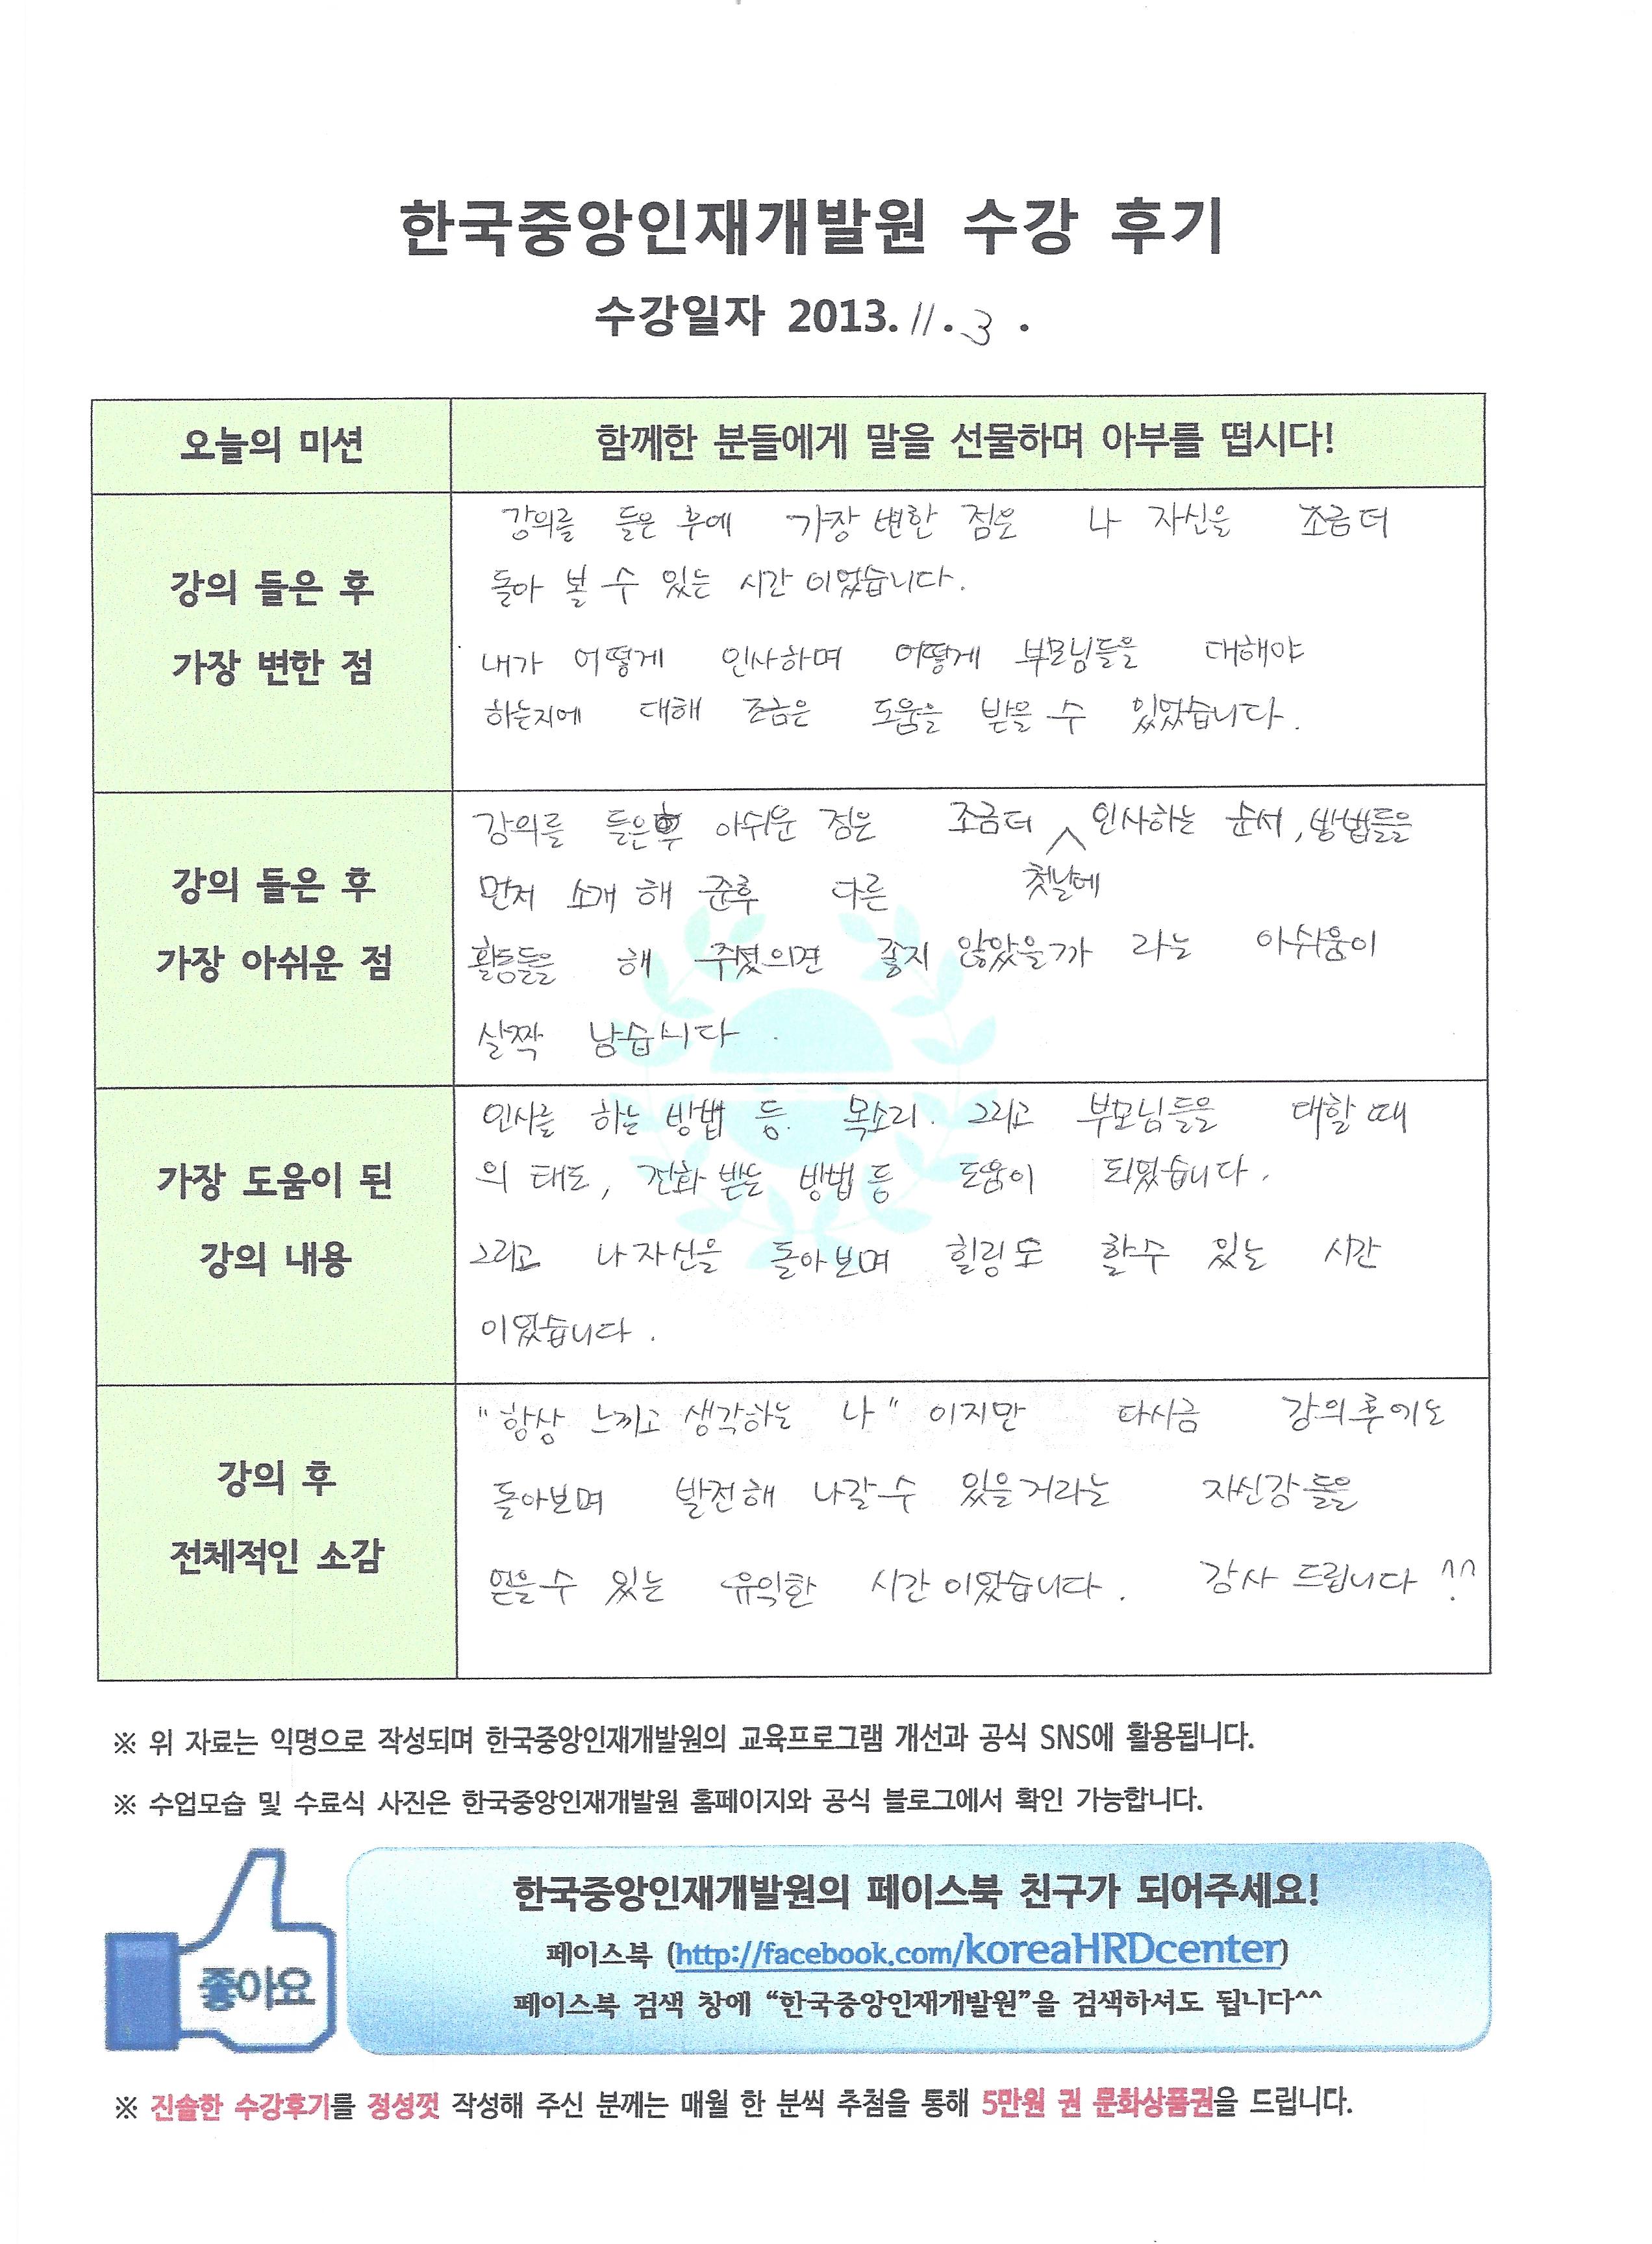 한국중앙인재개발원 수강 후기
수강일자 2013. 11. 3 .
오늘의 미션
함께한 분들에게 말을 선물하며 아부를 떱시다!
강의 들은 후
가장 변한 점
강의를 들은 후에 가장 변한 점은 나 자신을 조금더
돌아 볼 수 있는 시간 이었습니다.
내가 어떻게 인사하며 어떻게 부모님들을 대해야
하는지에 대해 조금은 도움을 받을 수 있었습니다.
강의 들은 후
가장 아쉬운 점
강의를 들은후 아쉬운 점은 조금더 첫날에 인사하는 순서, 방법들을
먼저 소개 해 준후 다른
활동들을 해 주셨으면 좋지 않았을까 라는 아쉬움이
살짝 남습니다.
가장 도움이 된
강의 내용
인사를 하는 방법 등. 목소리. 그리고 부모님들을 대할 때
의 태도, 전화 받는 방법 등 도움이 되었습니다.
그리고 나 자신을 돌아보며 힐링도 할수 있는 시간
이었습니다.
강의 후
전체적인 소감
"항상 느끼고 생각하는 나" 이지만 다시금 강의후에도
돌아보며 발전해 나갈수 있을거라는 자신감들을
얻을수 있는 유익한 시간이었습니다. 감사 드립니다 ^^
※ 위 자료는 익명으로 작성되며 한국중앙인재개발원의 교육프로그램 개선과 공식 SNS에 활용됩니다.
※ 수업모습 및 수료식 사진은 한국중앙인재개발원 홈페이지와 공식 블로그에서 확인 가능합니다.
좋아요
한국중앙인재개발원의 페이스북 친구가 되어주세요!
페이스북 (http://facebook.com/koreaHRDcenter)
페이스북 검색 창에 “한국중앙인재개발원”을 검색하셔도 됩니다^^
※ 진솔한 수강후기를 정성껏 작성해 주신 분께는 매월 한 분씩 추첨을 통해 5만원 권 문화상품권을 드립니다.